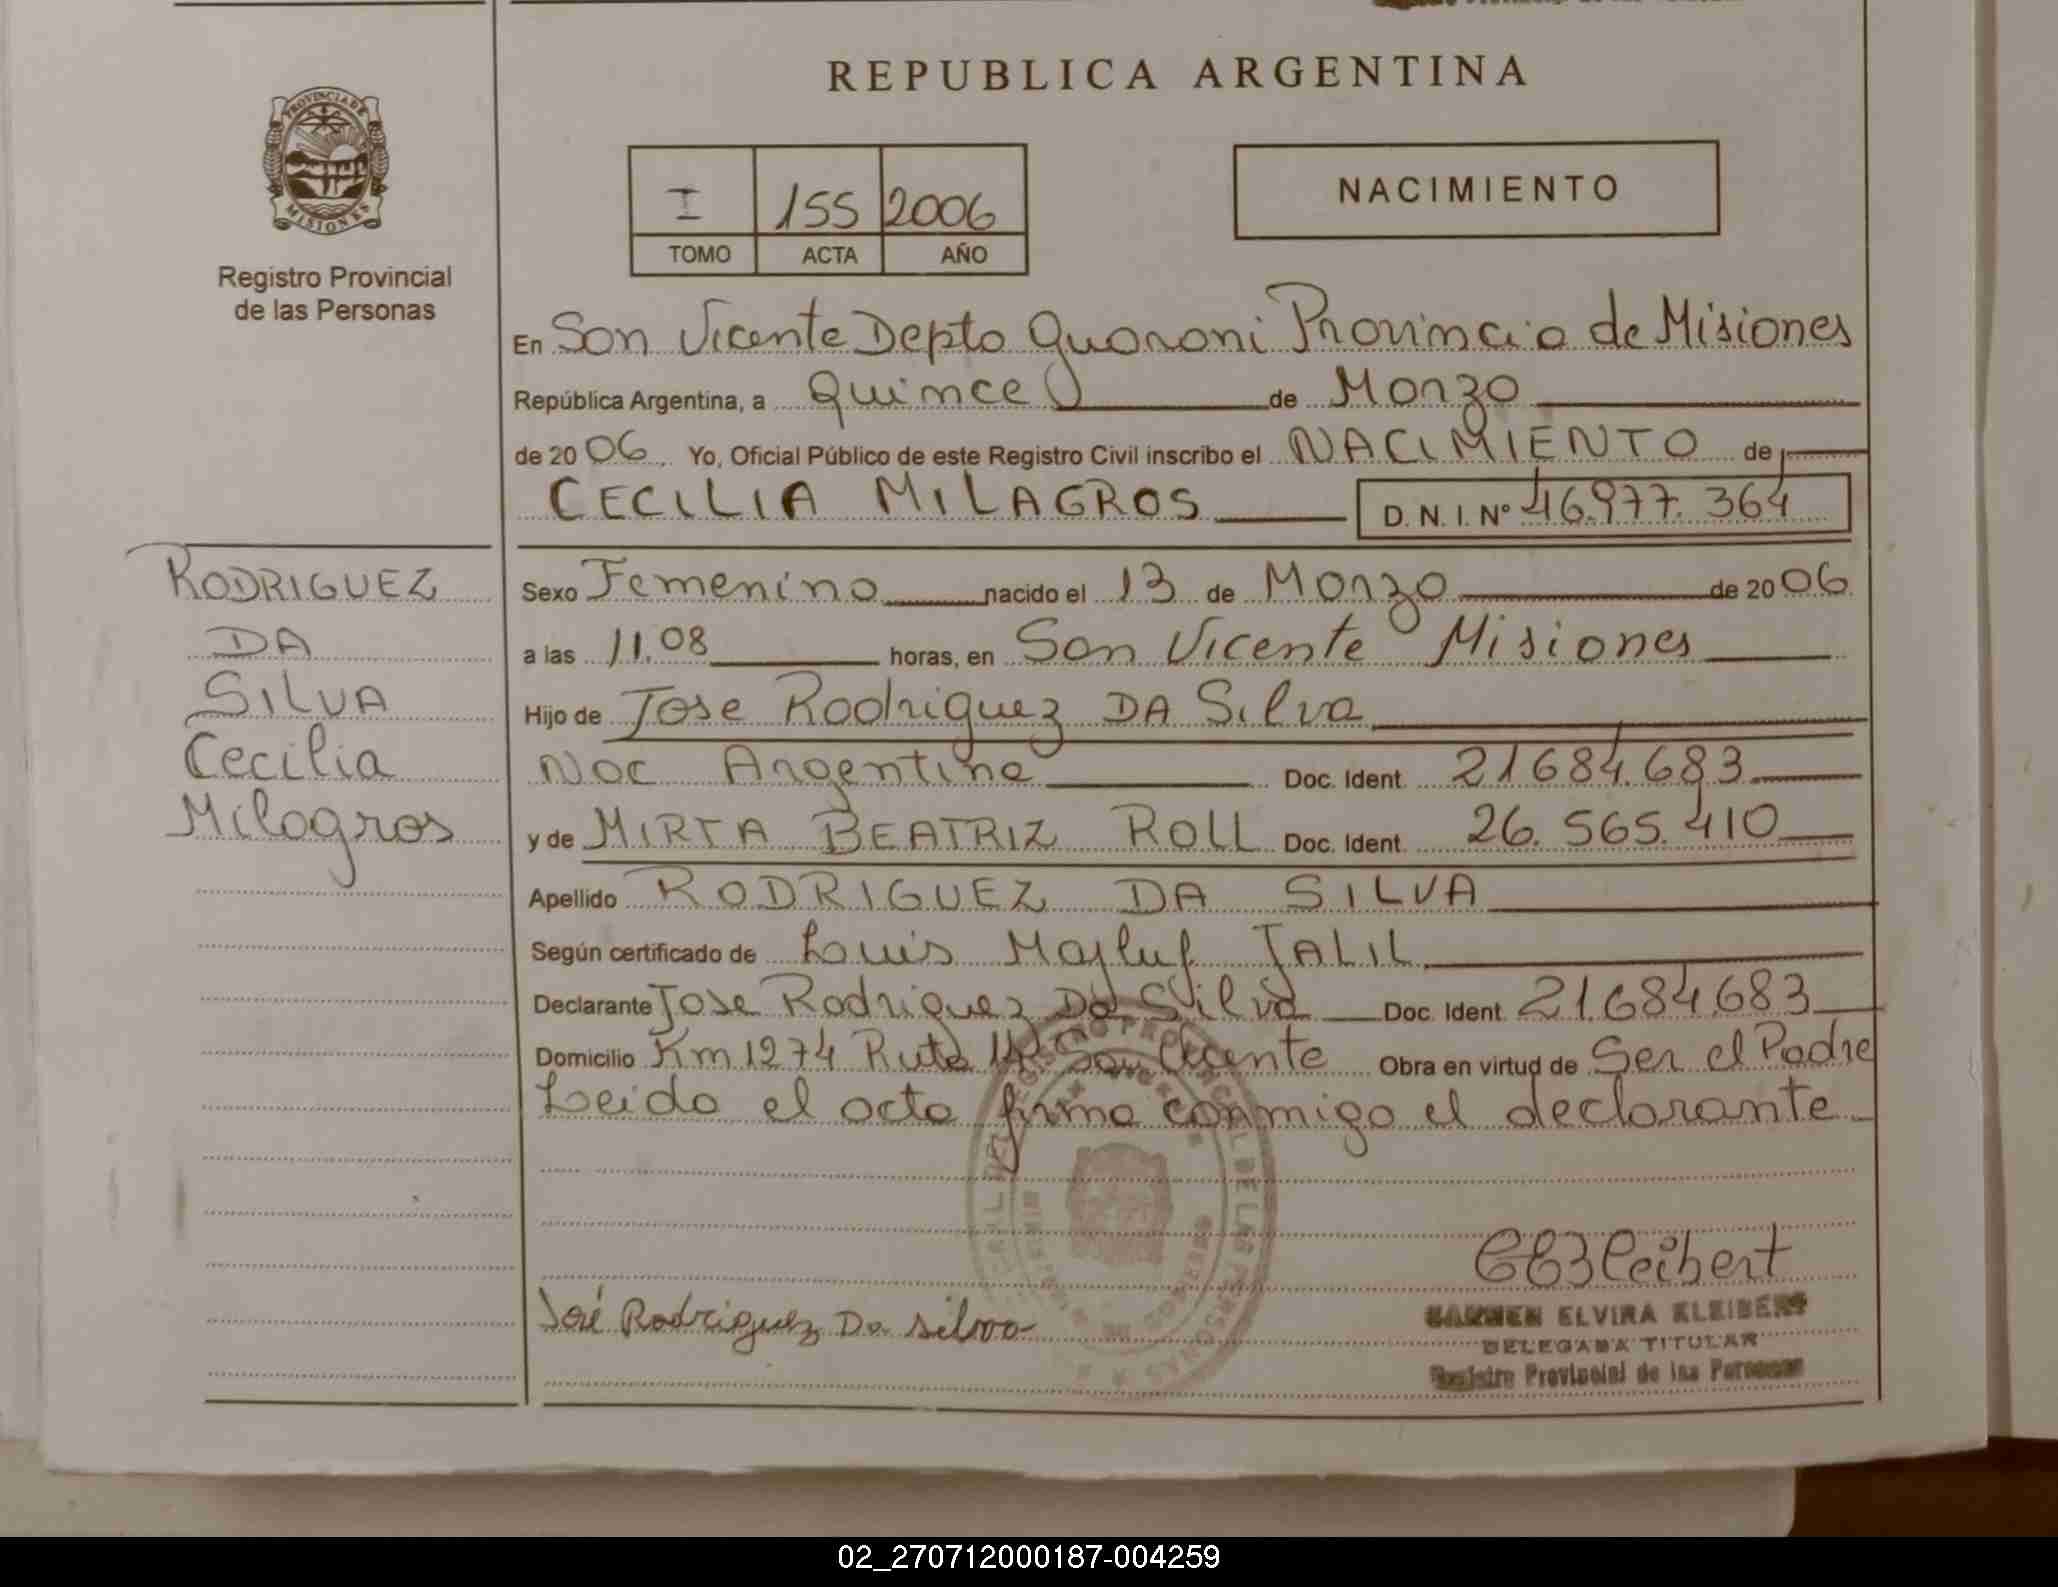 REPUBLICA ARGENTINA
PROVINCIA DE
MISIONES
Registro Provincial
de las Personas
I 155 2006
TOMO ACTA AÑO
NACIMIENTO
En San Vicente Depto Guarani Provincia de Misiones
República Argentina, a Quince de Marzo
de 2006. Yo, Oficial Público de este Registro Civil inscribo el NACIMIENTO de
CECILIA MILAGROS D. N. I. Nº 46.977.364
RODRIGUEZ
DA
SILVA
Cecilia
Milagros
Sexo Femenino nacido el 13 de Marzo de 2006
a las 11.08 horas, en San Vicente Misiones
Hijo de Jose Rodriguez DA Silva
Nac Argentina Doc. Ident. 21684.683
y de MIRTA BEATRIZ ROLL Doc. Ident. 26.565.410
Apellido RODRIGUEZ DA SILVA
Según certificado de Louis Majluf JALIL
Declarante Jose Rodriguez Da Silva Doc. Ident. 21.684.683
Domicilio Km 1274 Ruta 14 San Vicente Obra en virtud de Ser el Padre
Leido el acta firma conmigo el declarante
José Rodriguez Da Silva
CARMEN ELVIRA KLEIBERT
DELEGADA TITULAR
Registro Provincial de las Personas
02_270712000187-004259